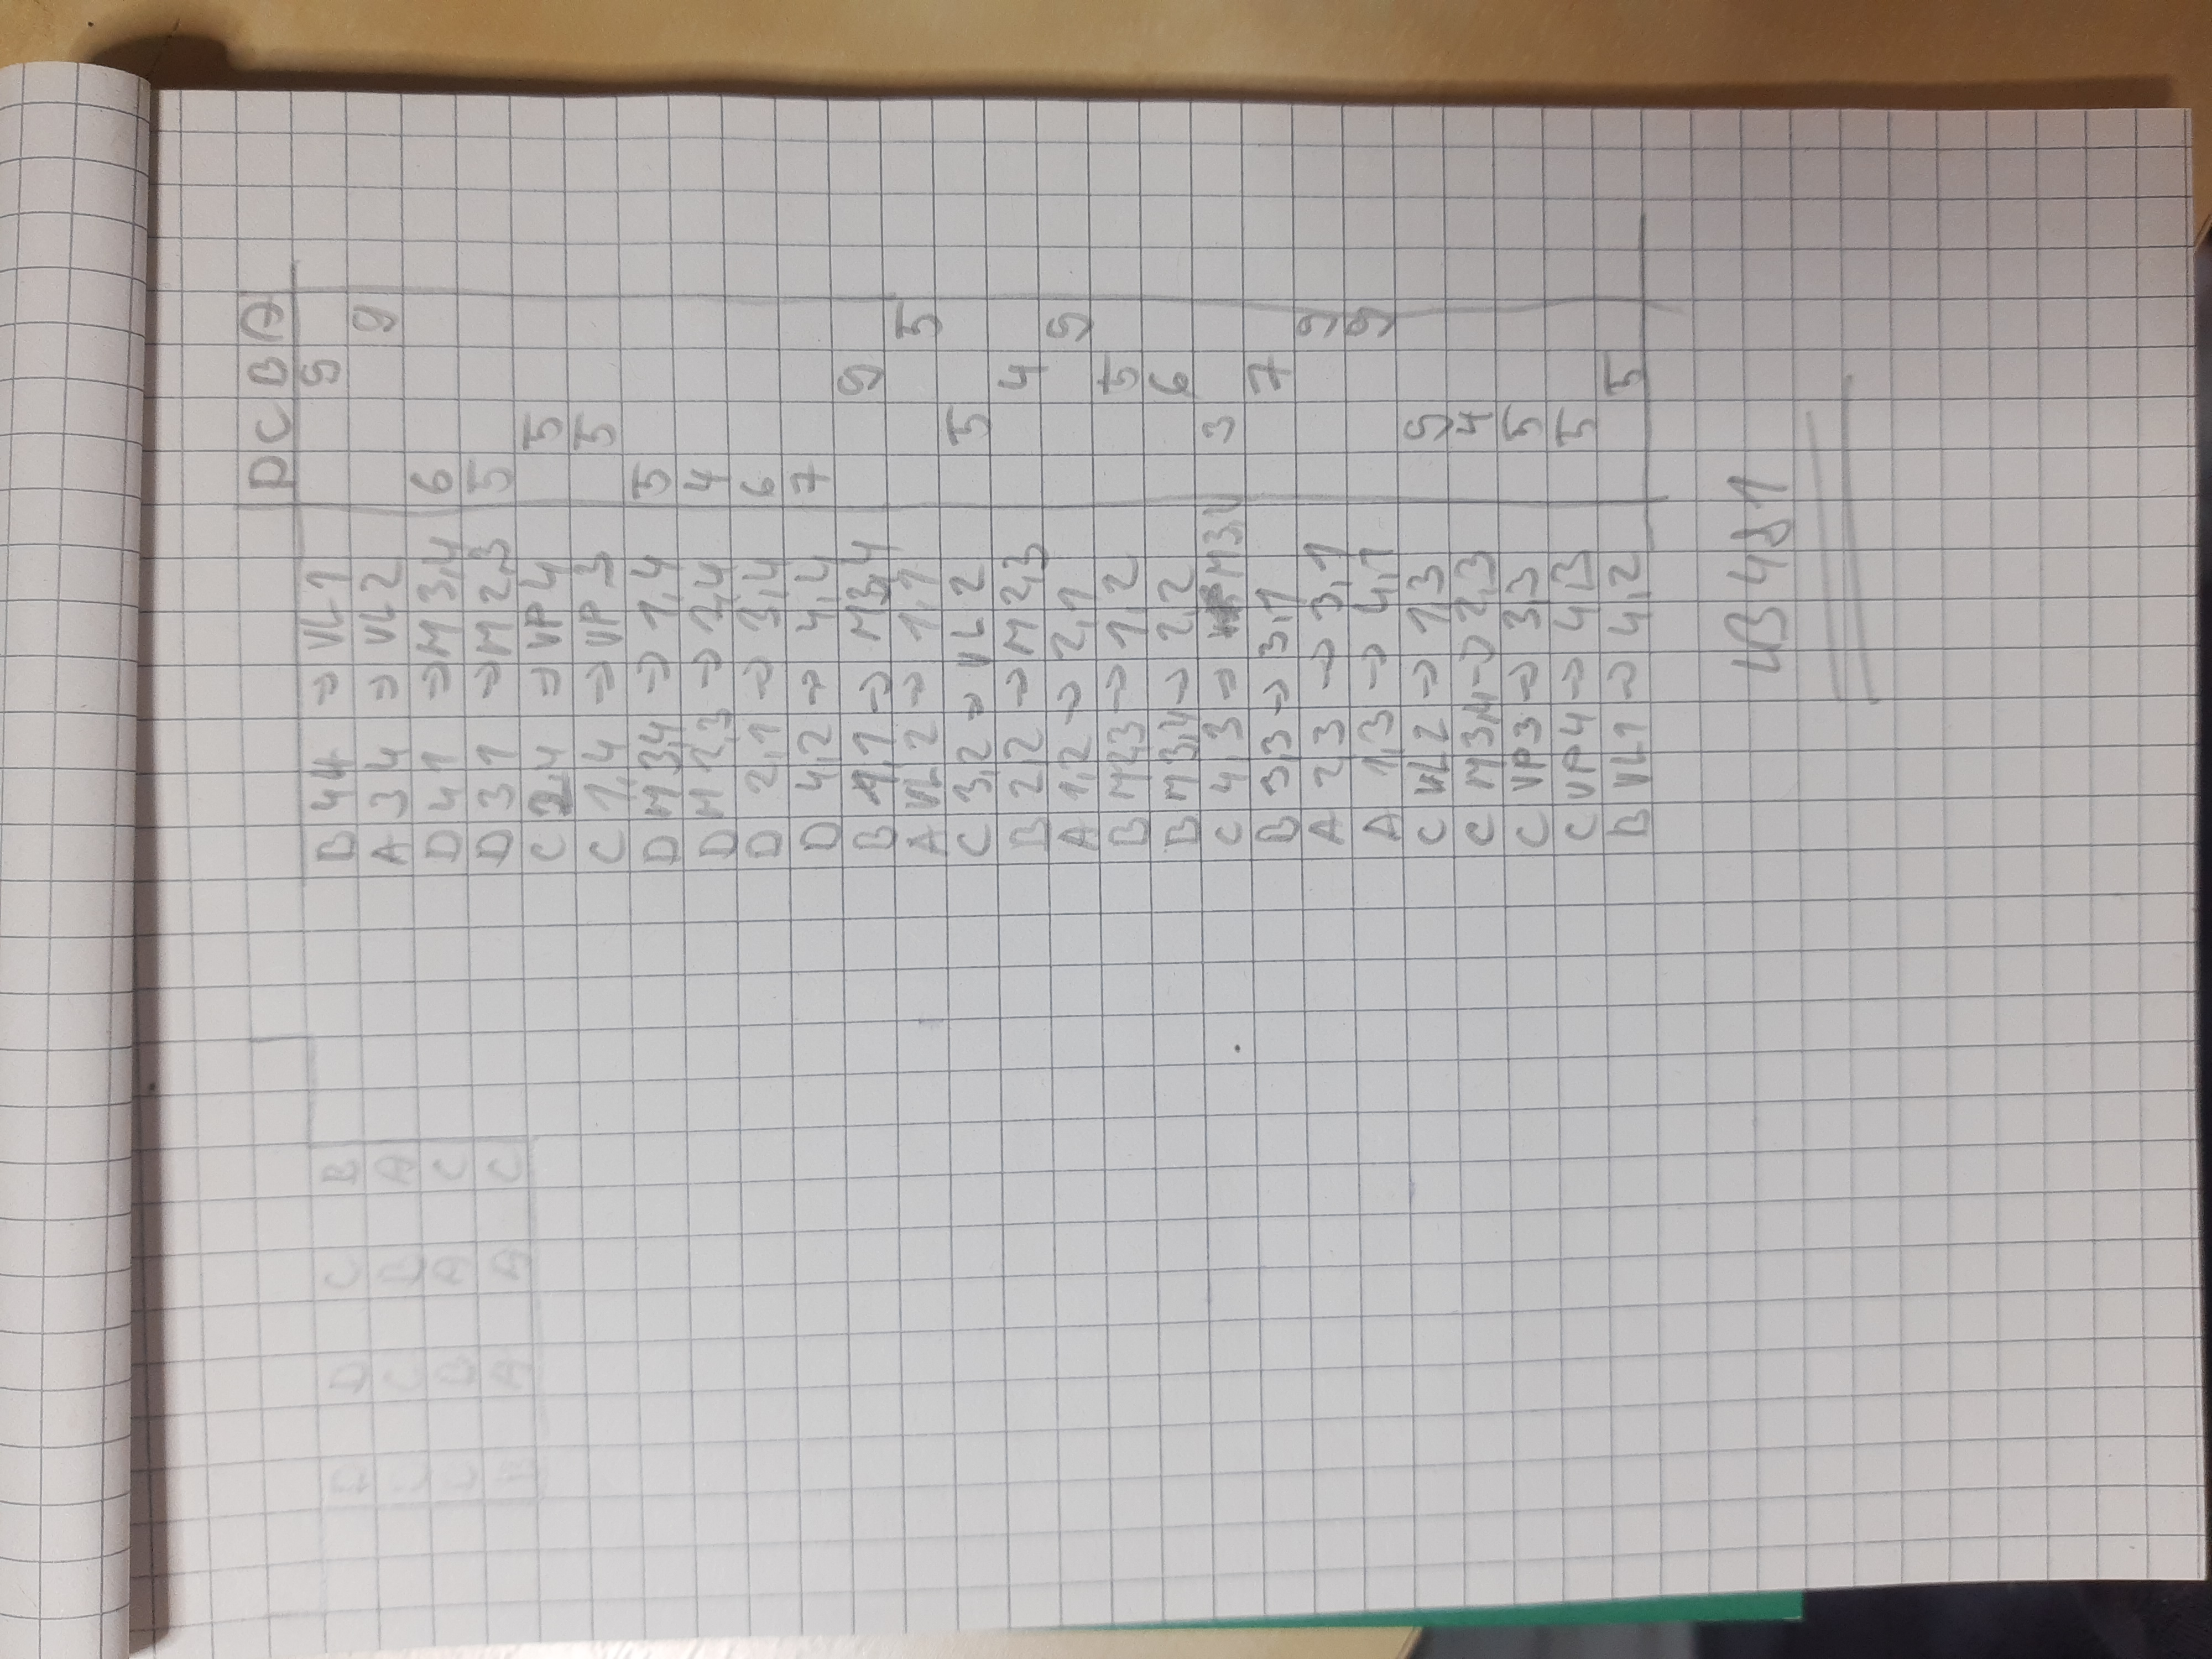 D C B A
B 44 → VL1 9
A 34 → VL2 9
D 41 → M 3,4 6
D 31 → M 2,3 5
C 2,4 → VP 4 5
C 1,4 → VP 3 5
D M 3,4 → 1,4 5
D M 2,3 → 2,4 4
D 2,1 → 3,4 6
D 4,2 → 4,4 7
B 1,1 → M3,4 9
A VL 2 → 1,1 5
C 3,2 → VL 2 5
B 2,2 → M 2,3 4
A 1,2 → 2,1 9
B M2,3 → 1,2 5
B M3,4 → 2,2 6
C 4,3 → M3,4 3
B 3,3 → 3,1 7
A 23 → 3,1 9
A 1,3 → 4,1 9
C VL2 → 1,3 9
C M3,4 → 2,3 4
C VP3 → 3,3 5
C VP4 → 4,3 5
B VL1 → 4,2 5
43 481
D D C B
C C B A
C B A C
B A A C